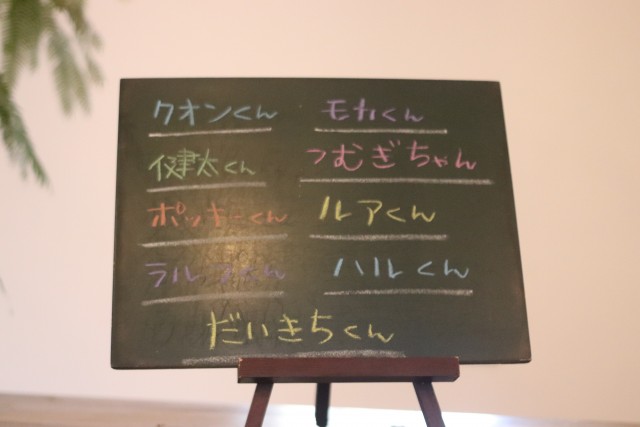 クオンくん モカくん
健太くん つむぎちゃん
ポッキーくん ルアくん
ラルフくん ハルくん
だいきちくん